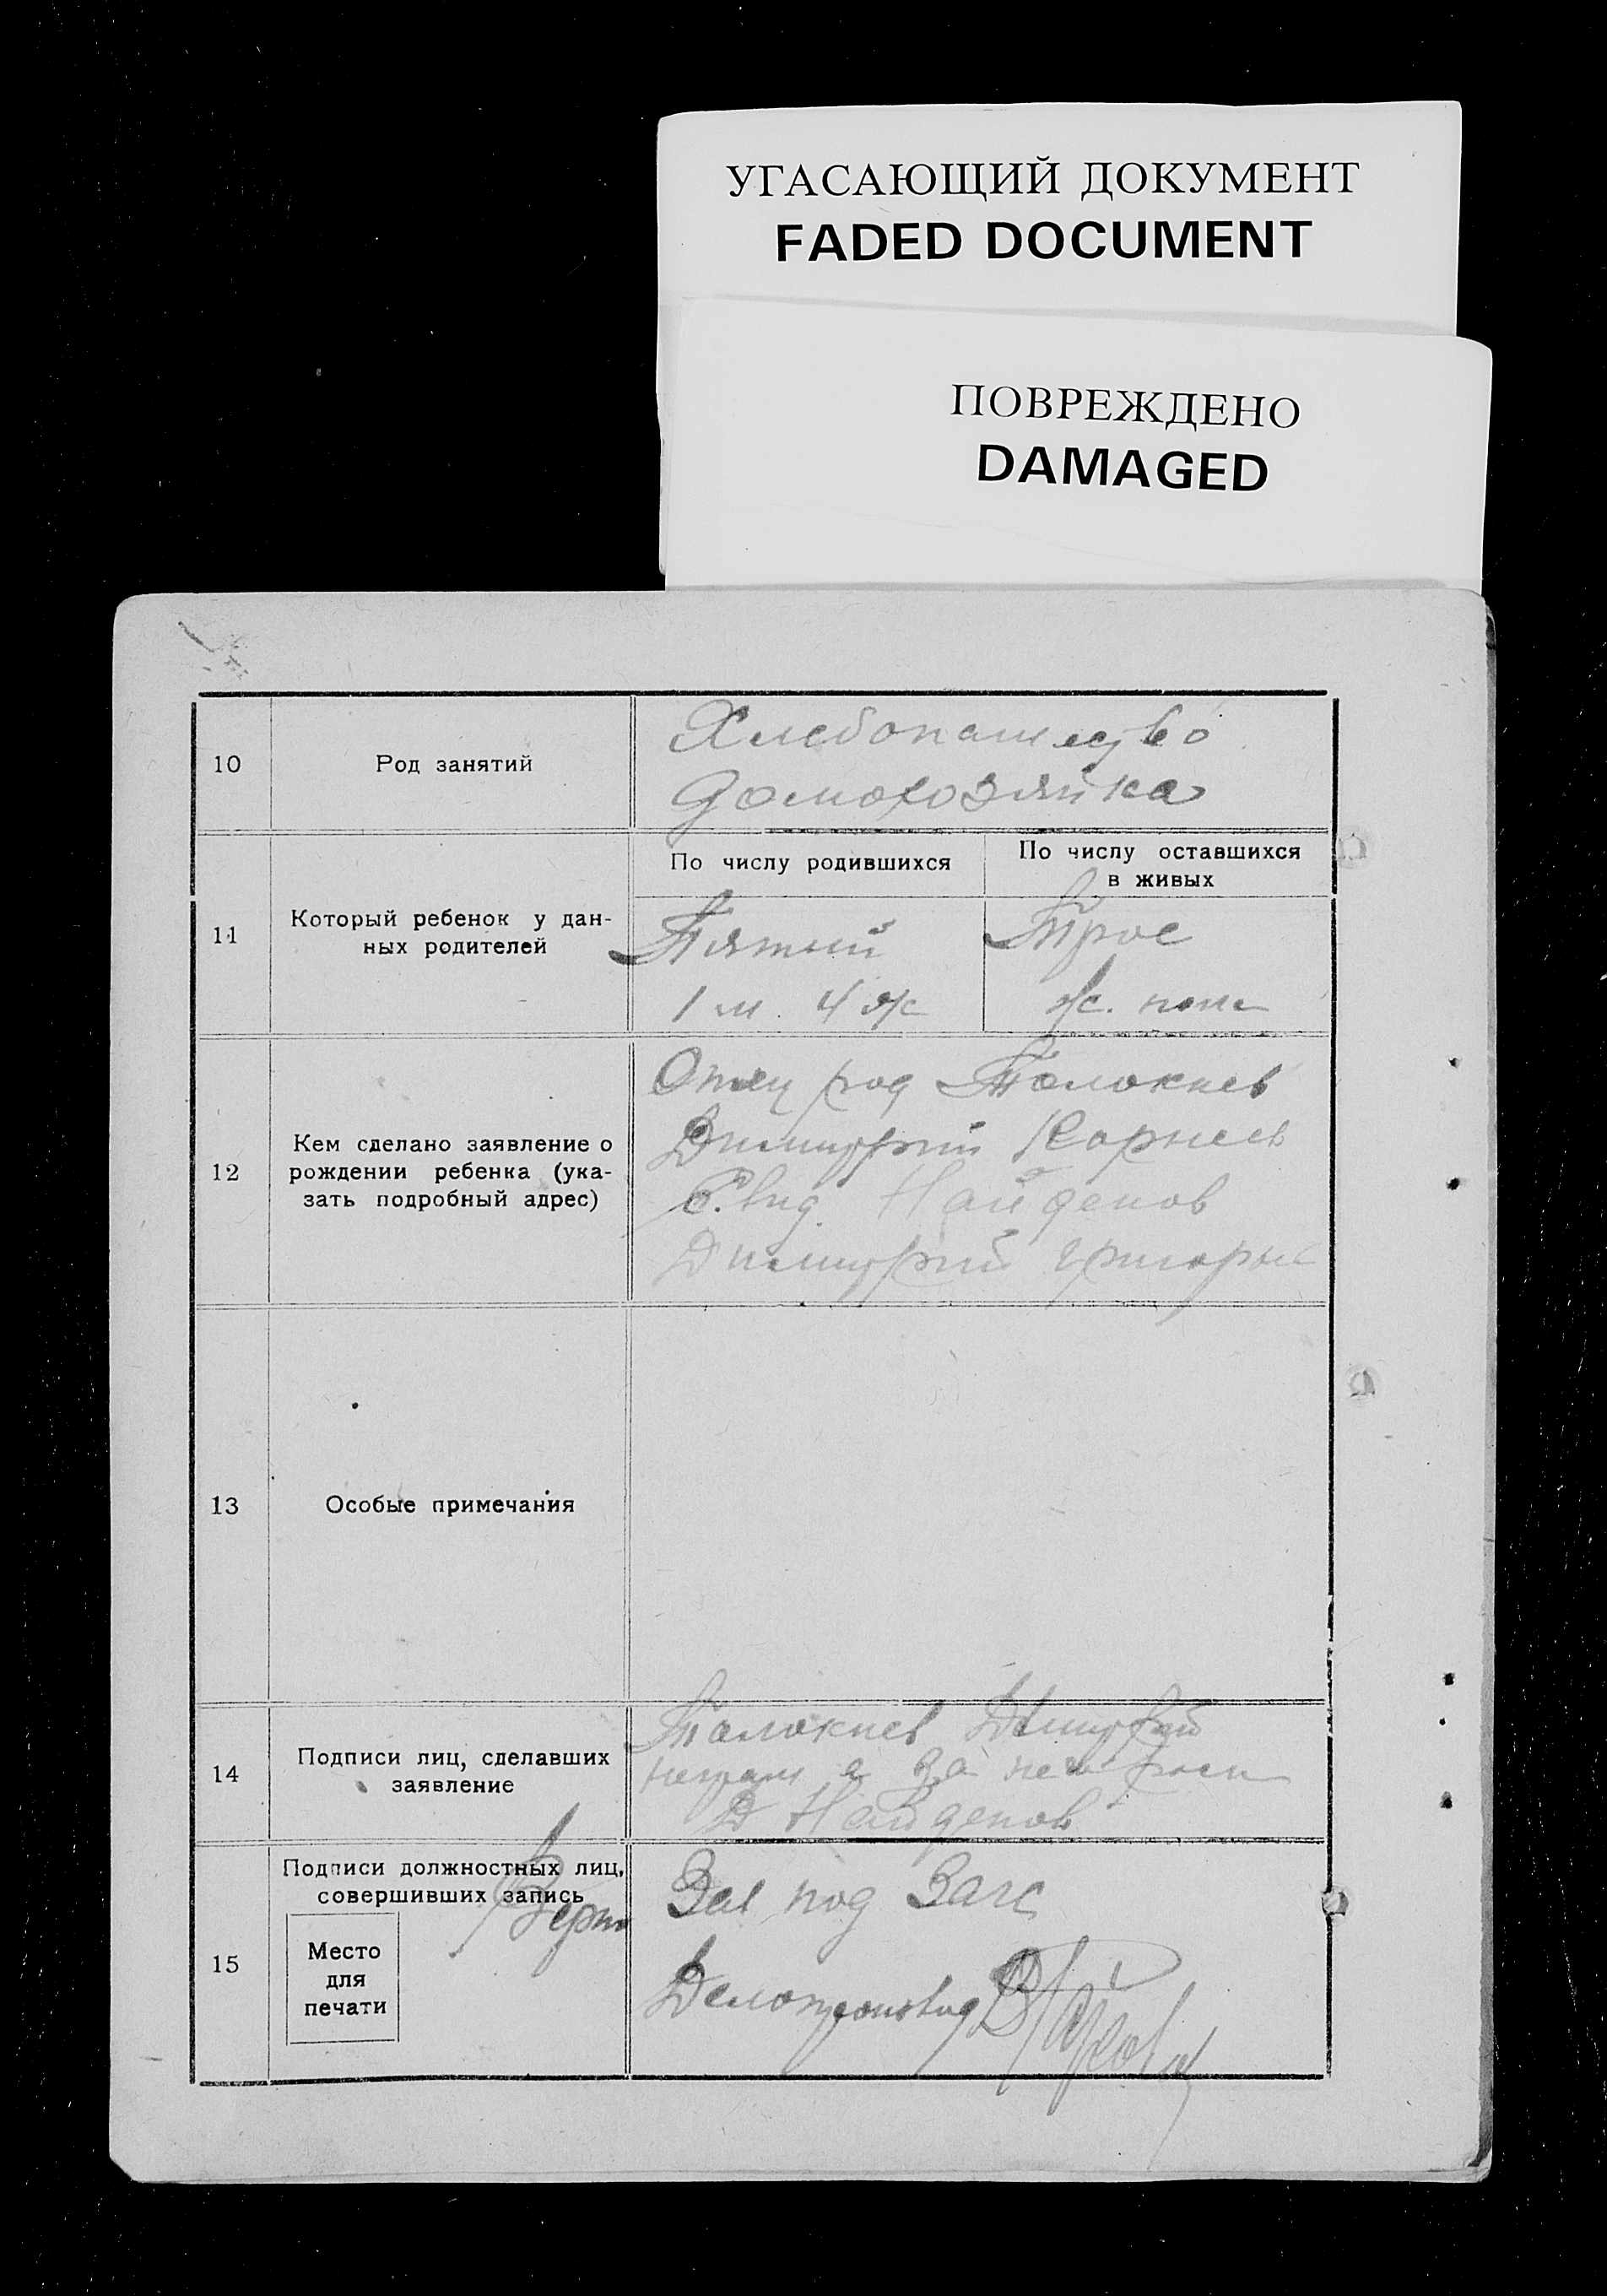 УГАСАЮЩИЙ ДОКУМЕНТ
FADED DOCUMENT
ПОВРЕЖДЕНО
DAMAGED
10
Род занятий
Хлебопашество
домохозяйка
11
Который ребенок у дан-
ных родителей
По числу родившихся
По числу оставшихся
в живых
Пятый
1 м. 4 ж
Трое
ж. пола
12
Кем сделано заявление о
рождении ребенка (ука-
зать подробный адрес)
Отец род Толокнев
Димитрий Корнеев
Свид. Найденов
Димитрий Григорьев
13
Особые примечания
14
Подписи лиц, сделавших
заявление
Толокнев Димитрий
а за него
Д Найденов
15
Подписи должностных лиц,
совершивших запись
Верно
Место
для
печати
Зав под Загс
Делопроизвод